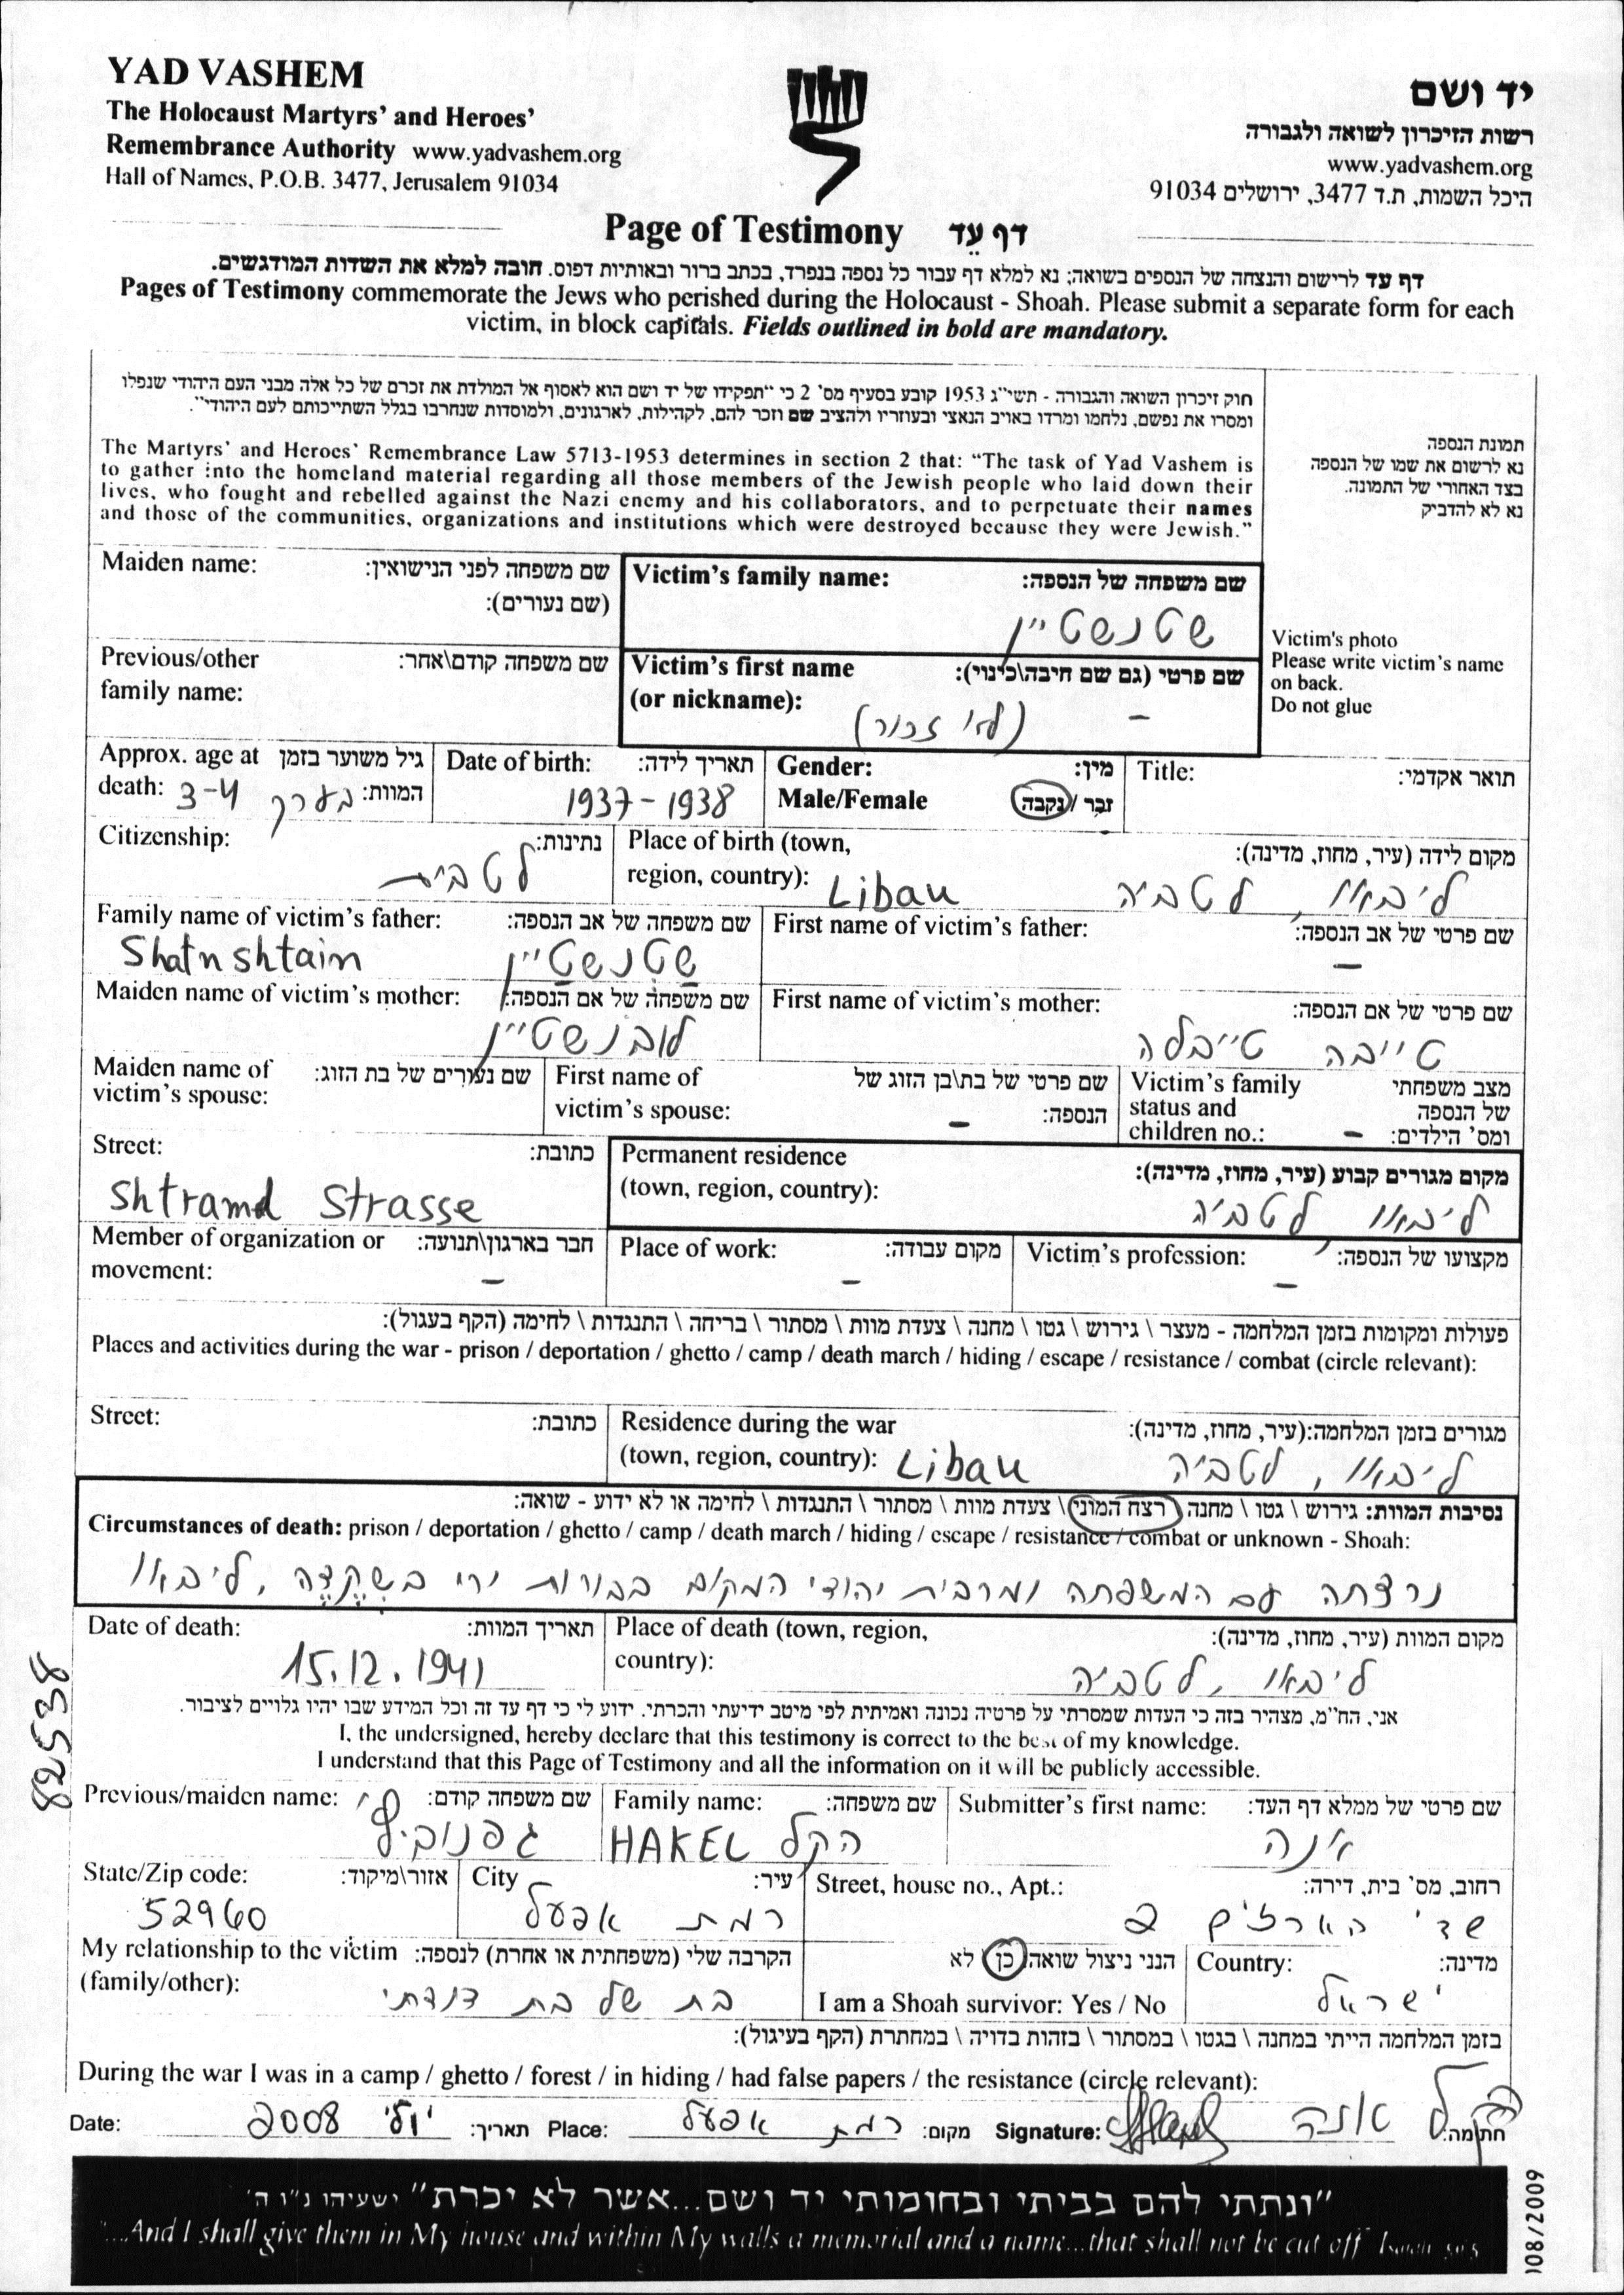 YAD VASHEM
The Holocaust Martyrs' and Heroes'
Remembrance Authority www.yadvashem.org
Hall of Names, P.O.B. 3477, Jerusalem 91034
יד ושם
רשות הזיכרון לשואה ולגבורה
www.yadvashem.org
היכל השמות, ת.ד 3477, ירושלים 91034
Page of Testimony דף עֵד
דף עד לרישום והנצחה של הנספים בשואה; נא למלא דף עבור כל נספה בנפרד, בכתב ברור ובאותיות דפוס. חובה למלא את השדות המודגשים.
Pages of Testimony commemorate the Jews who perished during the Holocaust - Shoah. Please submit a separate form for each
victim, in block capitals. Fields outlined in bold are mandatory.
חוק זיכרון השואה והגבורה - תשי"ג 1953 קובע בסעיף מס' 2 כי "תפקידו של יד ושם הוא לאסוף אל המולדת את זכרם של כל אלה מבני העם היהודי שנפלו
ומסרו את נפשם, נלחמו ומרדו באויב הנאצי ובעוזריו ולהציב שם וזכר להם, לקהילות, לארגונים, ולמוסדות שנחרבו בגלל השתייכותם לעם היהודי".
The Martyrs' and Heroes' Remembrance Law 5713-1953 determines in section 2 that: "The task of Yad Vashem is
to gather into the homeland material regarding all those members of the Jewish people who laid down their
lives, who fought and rebelled against the Nazi enemy and his collaborators, and to perpetuate their names
and those of the communities, organizations and institutions which were destroyed because they were Jewish."
תמונת הנספה
נא לרשום את שמו של הנספה
בצד האחורי של התמונה.
נא לא להדביק
Victim's photo
Please write victim's name
on back.
Do not glue
Maiden name: שם משפחה לפני הנישואין:
(שם נעורים):
Victim's family name: שם משפחה של הנספה:
שטנשטיין
Previous/other family name: שם משפחה קודם\אחר:
Victim's first name (or nickname): שם פרטי (גם שם חיבה\כינוי):
- (לא זכור)
Approx. age at death: גיל משוער בזמן המוות:
בערך 3-4
Date of birth: תאריך לידה:
1937 - 1938
Gender: מין:
Male/Female זכר / נקבה
Title: תואר אקדמי:
Citizenship: נתינות:
לטבית
Place of birth (town, region, country): מקום לידה (עיר, מחוז, מדינה):
Libau ליבאו, לטביה
Family name of victim's father: שם משפחה של אב הנספה:
Shatnshtain שטנשטיין
First name of victim's father: שם פרטי של אב הנספה:
-
Maiden name of victim's mother: שם משפחה של אם הנספה:
לובנשטיין
First name of victim's mother: שם פרטי של אם הנספה:
טייבה טייבלה
Maiden name of victim's spouse: שם נעורים של בת הזוג:
First name of victim's spouse: שם פרטי של בת\בן הזוג של הנספה:
-
Victim's family status and children no.: מצב משפחתי של הנספה ומס' הילדים:
-
Street: כתובת:
Shtramd Strasse
Permanent residence (town, region, country): מקום מגורים קבוע (עיר, מחוז, מדינה):
ליבאו לטביה
Member of organization or movement: חבר בארגון\תנועה:
-
Place of work: מקום עבודה:
-
Victim's profession: מקצועו של הנספה:
-
פעולות ומקומות בזמן המלחמה - מעצר \ גירוש \ גטו \ מחנה \ צעדת מוות \ מסתור \ בריחה \ התנגדות \ לחימה (הקף בעגול):
Places and activities during the war - prison / deportation / ghetto / camp / death march / hiding / escape / resistance / combat (circle relevant):
Street: כתובת:
Residence during the war (town, region, country): מגורים בזמן המלחמה:(עיר, מחוז, מדינה):
Libau ליבאו, לטביה
נסיבות המוות: גירוש \ גטו \ מחנה \ רצח המוני \ צעדת מוות \ מסתור \ התנגדות \ לחימה או לא ידוע - שואה:
Circumstances of death: prison / deportation / ghetto / camp / death march / hiding / escape / resistance / combat or unknown - Shoah:
נרצחה עם המשפחה ומרבית יהודי המקום בבורות ירי בשקדה, ליבאו
Date of death: תאריך המוות:
15.12.1941
Place of death (town, region, country): מקום המוות (עיר, מחוז, מדינה):
ליבאו, לטביה
אני, הח"מ, מצהיר בזה כי העדות שמסרתי על פרטיה נכונה ואמיתית לפי מיטב ידיעתי והכרתי. ידוע לי כי דף עד זה וכל המידע שבו יהיו גלויים לציבור.
I, the undersigned, hereby declare that this testimony is correct to the best of my knowledge.
I understand that this Page of Testimony and all the information on it will be publicly accessible.
Previous/maiden name: שם משפחה קודם:
Family name: שם משפחה:
HAKEL הקל
Submitter's first name: שם פרטי של ממלא דף העד:
אנה
State/Zip code: אזור\מיקוד:
52960
City עיר:
רמת אפעל
Street, house no., Apt.: רחוב, מס' בית, דירה:
שד' הארזים 2
My relationship to the victim (family/other): הקרבה שלי (משפחתית או אחרת) לנספה:
בת של בת דודתי
הנני ניצול שואה כן \ לא
I am a Shoah survivor: Yes / No
Country: מדינה:
ישראל
בזמן המלחמה הייתי במחנה \ בגטו \ במסתור \ בזהות בדויה \ במחתרת (הקף בעיגול):
During the war I was in a camp / ghetto / forest / in hiding / had false papers / the resistance (circle relevant):
Date: יולי 2008 תאריך: Place: רמת אפעל מקום: Signature: חתימה:
"ונתתי להם בביתי ובחומותי יד ושם...אשר לא יכרת" ישעיהו נ"ו ה'
"...And I shall give them in My house and within My walls a memorial and a name...that shall not be cut off" Isaiah 56:5
82538
108/2009